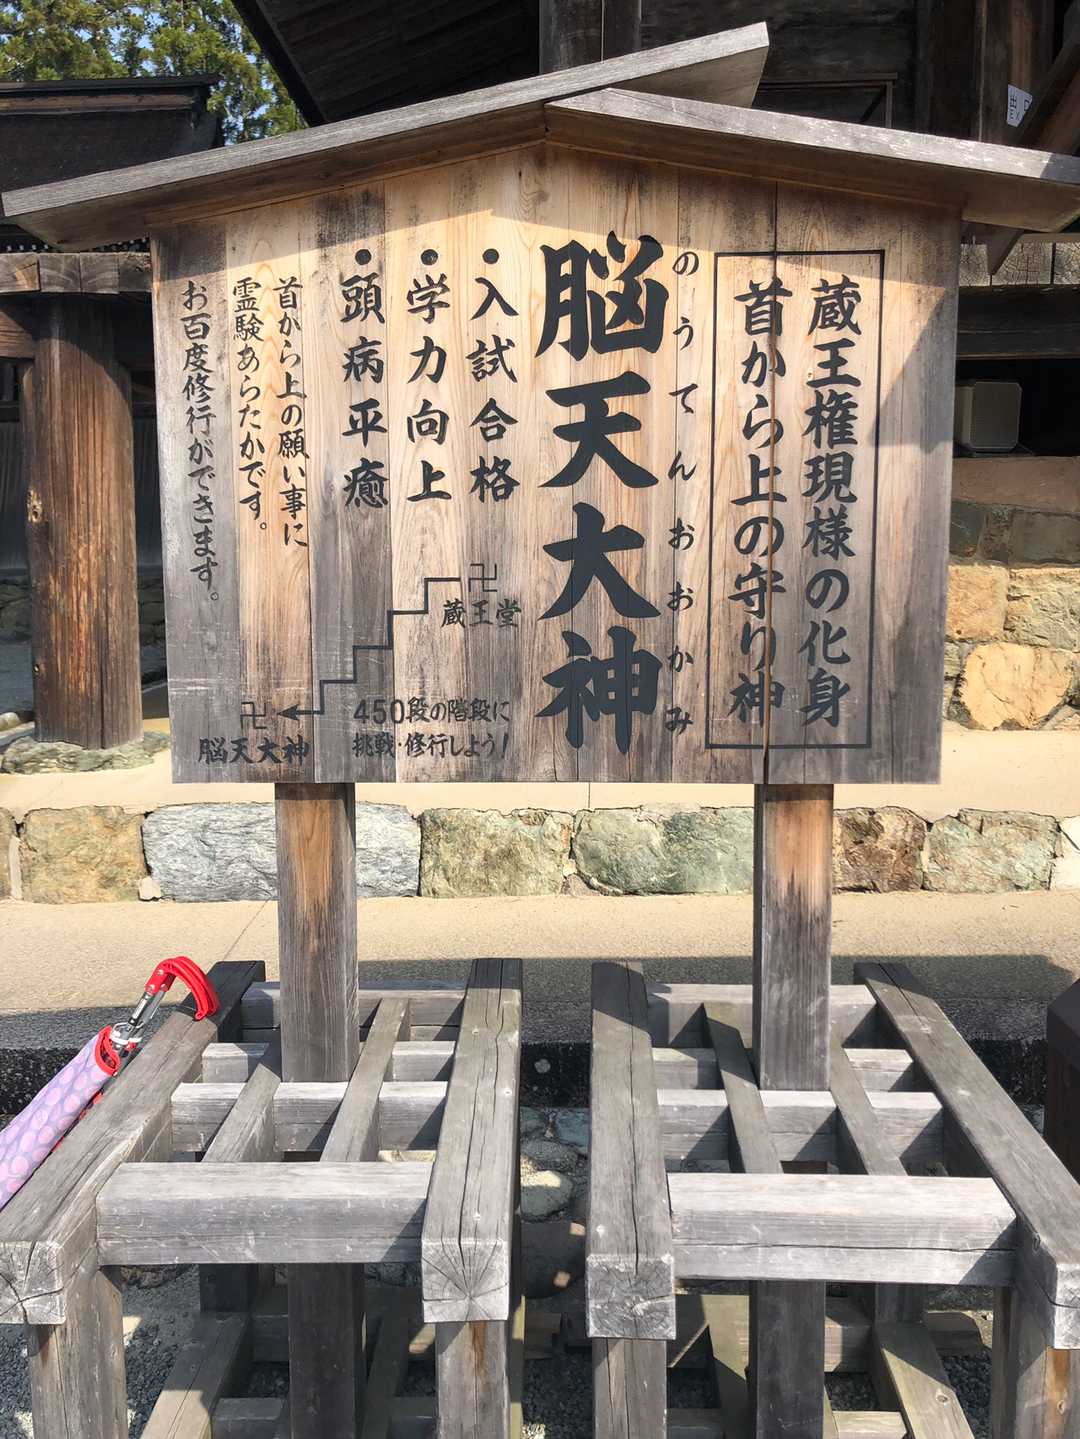 蔵王権現様の化身
首から上の守り神
のうてんおおかみ
脳天大神
・入試合格
・学力向上
・頭病平癒
首から上の願い事に
霊験あらたかです。
お百度修行ができます。
卍
蔵王堂
450段の階段に
挑戦・修行しよう!
卍
脳天大神
出口